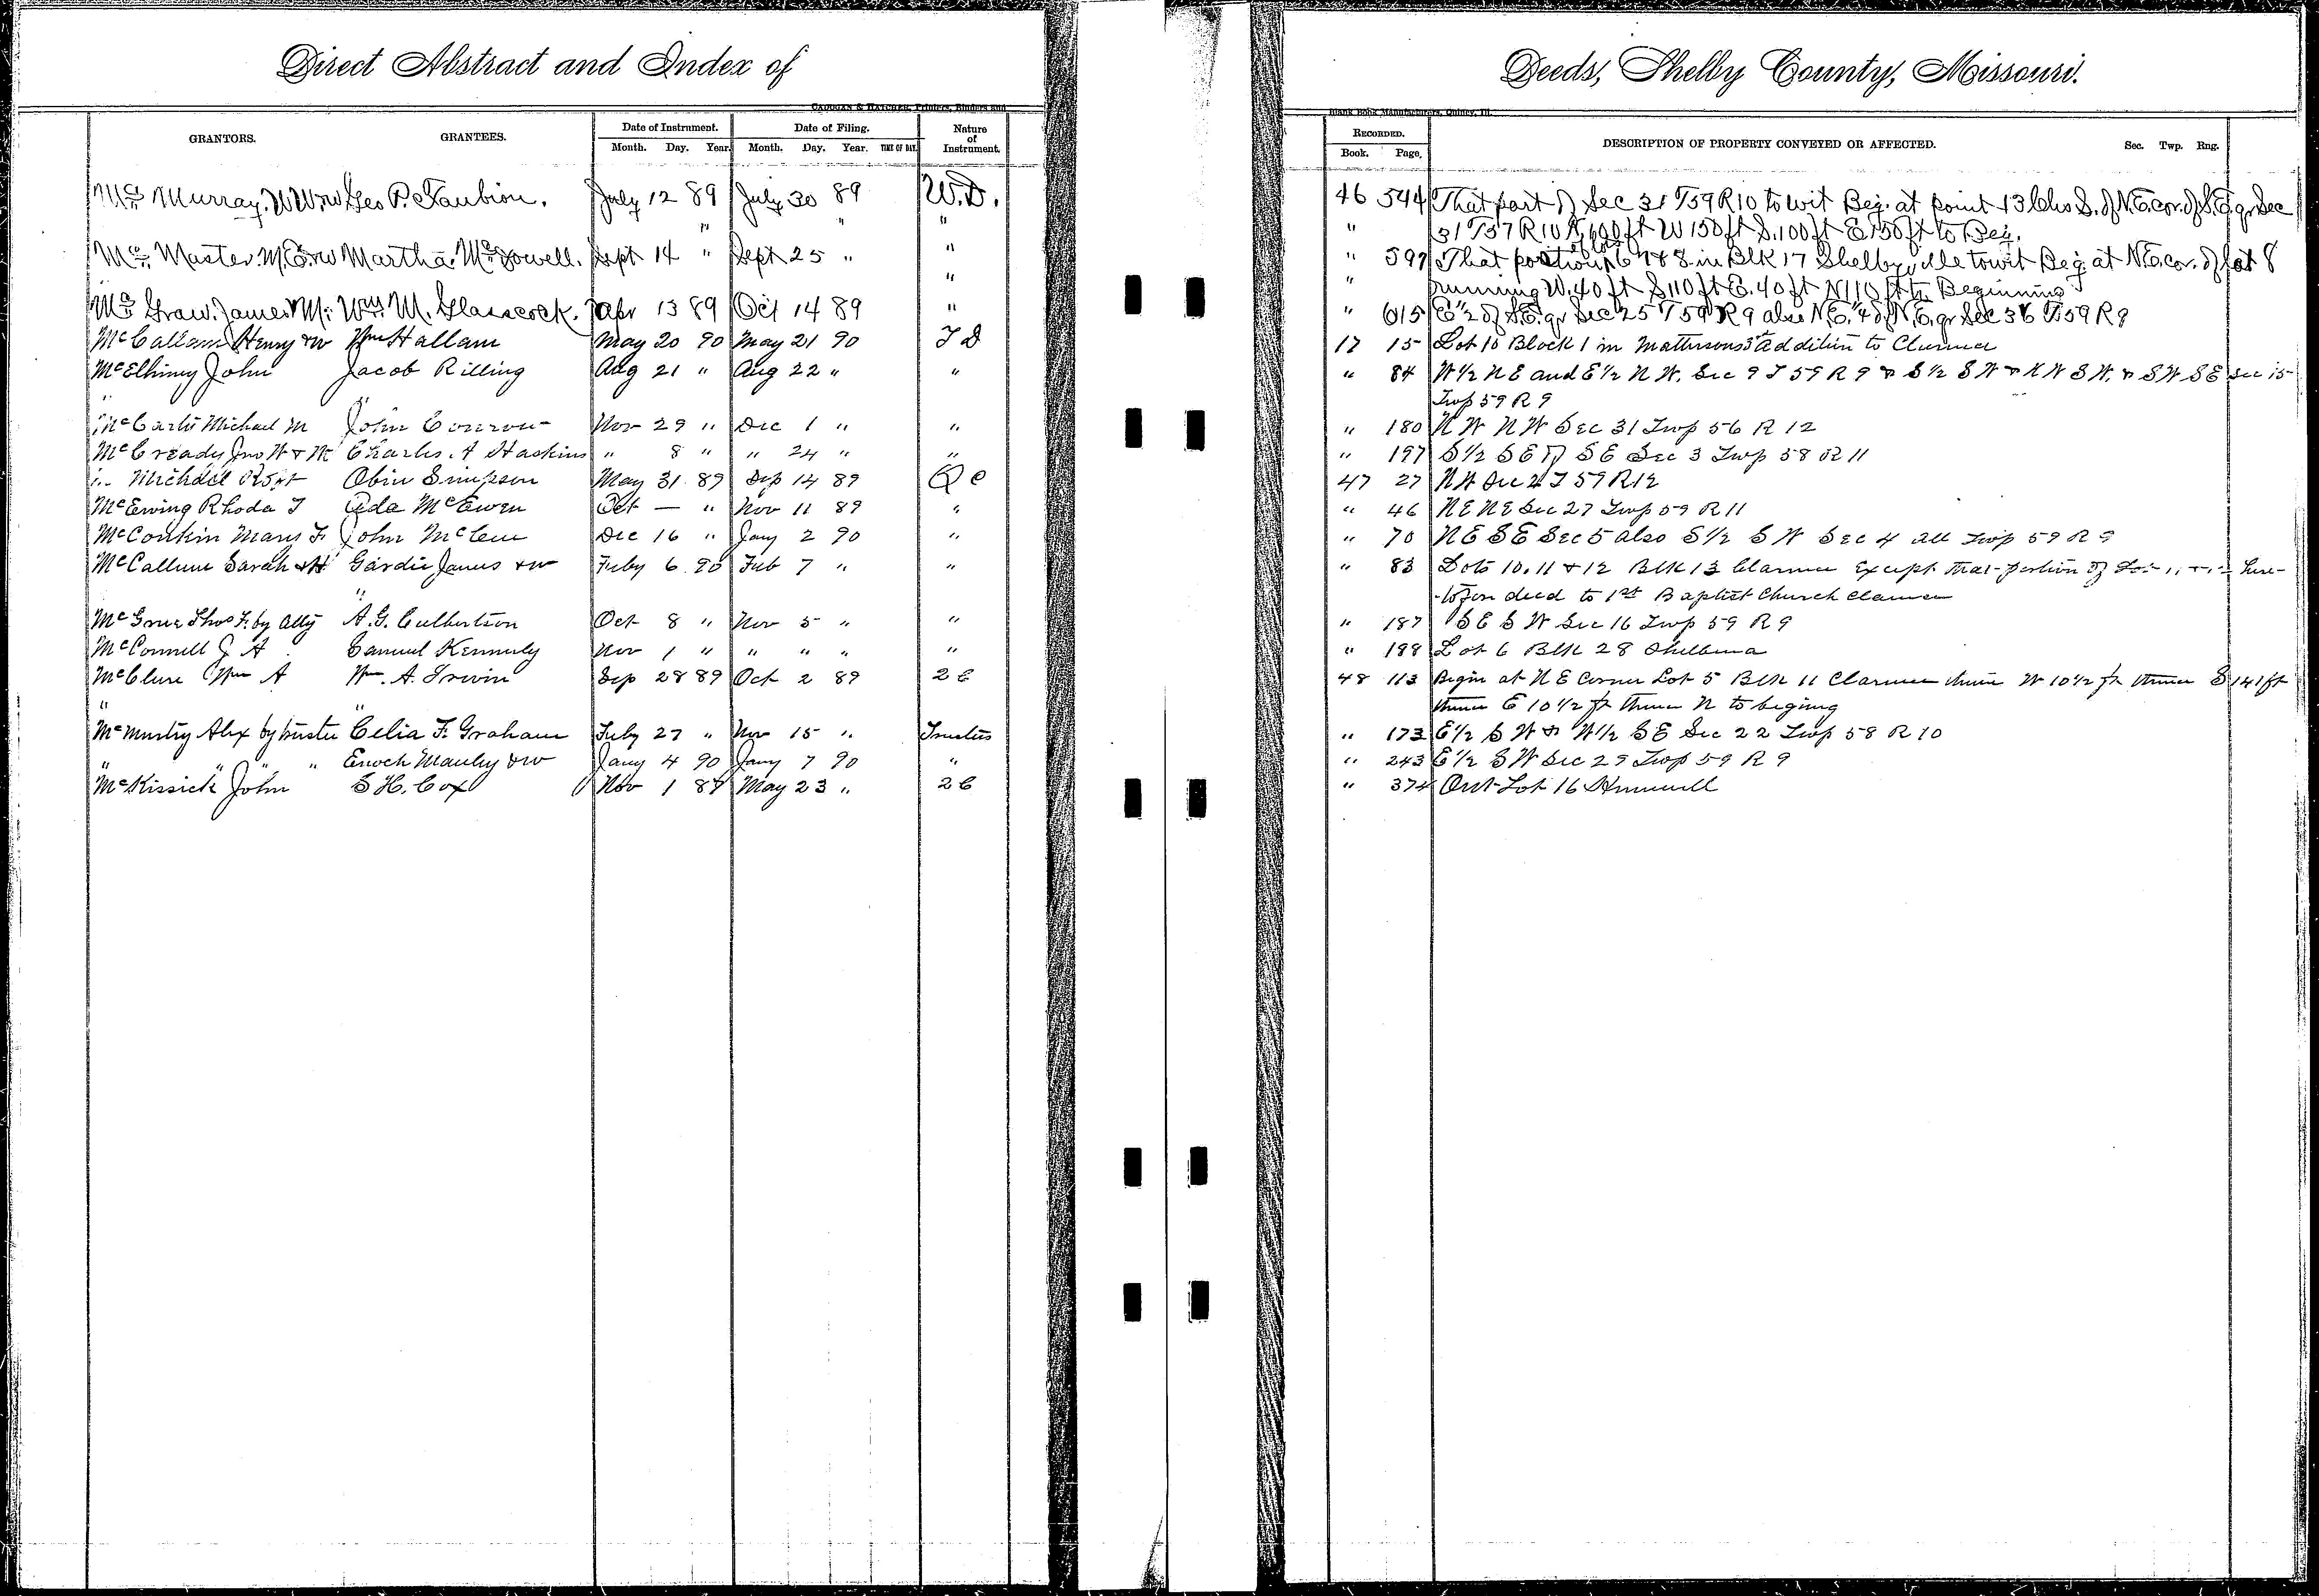 Direct Abstract and Index of Deeds, Shelby County, Missouri.
CADOGAN & HATCHER, Printers, Binders and Blank Book Manufacturers, Quincy, Ill.
GRANTORS. GRANTEES. Date of Instrument. Date of Filing. Nature of Instrument. RECORDED. DESCRIPTION OF PROPERTY CONVEYED OR AFFECTED. Sec. Twp. Rng.
Month. Day. Year. Month. Day. Year. TIME OF DAY. Book. Page.
Mc Murray. W W & w Geo P. Faubion. July 12 89 July 30 89 W.D. 46 544 That part of Sec 31 T59 R10 to wit Beg. at point 13 Chs S. of N.E. cor. of S.E. qr Sec
" " " " 31 T57 R10 N. 100 ft W 150 ft S. 100 ft E 150 ft to Beg.
Mc Master. M.E. & w Martha McDowell. Sept 14 " Sept 25 " " " 597 That portion of lots 6 7 & 8 in Blk 17 Shelbyville towit Beg. at N.E. cor. of lot 8
" " running W. 40 ft S 110 ft E. 40 ft N 110 ft to Beginning
Mc Graw. James M. Wm. M. Glasscock. Apr 13 89 Oct 14 89 " " 615 E 1/2 of S.E. qr Sec 25 T59 R9 also N.E. 1/4 of N.E. qr Sec 36 T59 R9
McCallam Henry & w Wm Hallam May 20 90 May 21 90 T D 17 15 Lot 10 Block 1 in Mattersons addition to Clarence
McElhiney John Jacob Rilling Aug 21 " Aug 22 " " " 84 W 1/2 N E and E 1/2 N W. Sec 9 T 59 R 9 & S 1/2 S W & N W S W. & S W S E Sec 15
" " Twp 59 R 9
McCarty Michael M John Conrow Nov 29 " Dec 1 " " " 180 N W N W Sec 31 Twp 56 R 12
McCready Jno W & W Charles A Haskins " 8 " " 24 " " " 197 S 1/2 S E of S E Sec 3 Twp 58 R 11
Michael Robt Obin Simpson May 31 89 Sep 14 89 Q C 47 27 N W Sec 2 T 59 R 12
McEwing Rhoda T Ada McEwen Oct — " Nov 11 89 " " 46 N E N E Sec 27 Twp 59 R 11
McConkin Mary F John McLem Dec 16 " Jany 2 90 " " 70 N E S E Sec 5 also S 1/2 S W Sec 4 all Twp 59 R 9
McCallum Sarah & H Gardie James & w Feby 6 90 Feb 7 " " " 83 Lots 10. 11 & 12 Blk 13 Clarence Except that portion of Lots 11 & 12 here-
" -tofore deed to 1st Baptist Church Clarence
McGrue Thos F. by atty A. G. Culbertson Oct 8 " Nov 5 " " " 187 S E S W Sec 16 Twp 59 R 9
McConnell J A Samuel Kennerly Nov 1 " " " " " " 188 Lot 6 Blk 28 Shelbina
McClure Wm A Wm. A. Irwin Sep 28 89 Oct 2 89 2 C 48 113 Begin at N E Corner Lot 5 Blk 11 Clarence thence W 10 1/2 ft thence S 141 ft
" " thence E 10 1/2 ft thence N to begining
McMurtry Alex by trustee Celia F. Graham Feby 27 " Nov 15 " Trustees " 173 E 1/2 S W & W 1/2 S E Sec 22 Twp 58 R 10
" " " " Enoch Manley & w Jany 4 90 Jany 7 90 " " 243 E 1/2 S W Sec 29 Twp 59 R 9
McKissick John S H. Cox Nov 1 87 May 23 " 2 C " 374 Out Lot 16 Hunnewell